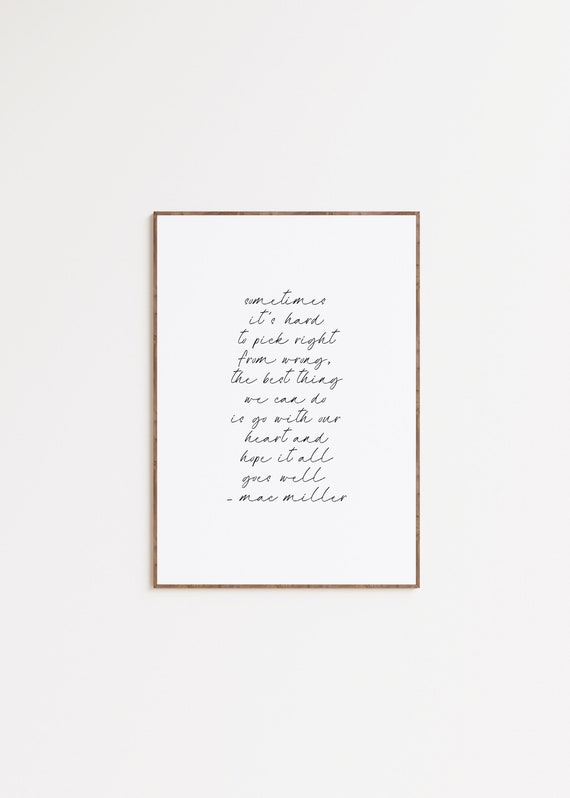 sometimes
it's hard
to pick right
from wrong,
the best thing
we can do
is go with our
heart and
hope it all
goes well
- mac miller